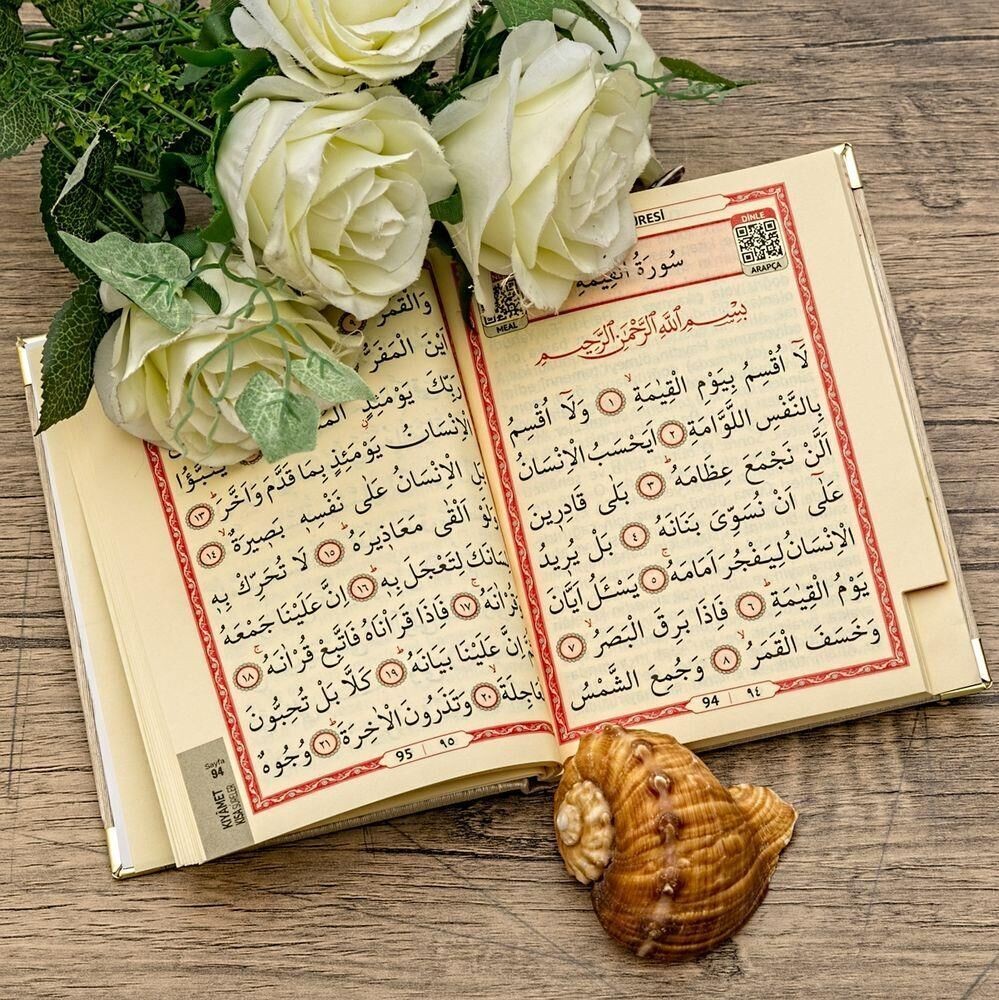 RESİ
DİNLE
ARAPÇA
MEAL
سُورَةُ الْقِيٰمَةِ
بِسْمِ اللّٰهِ الرَّحْمٰنِ الرَّحِيمِ
لَٓا اُقْسِمُ بِيَوْمِ الْقِيٰمَةِۙ ١ وَلَٓا اُقْسِمُ
بِالنَّفْسِ اللَّوَّامَةِ ٢ اَيَحْسَبُ الْاِنْسَانُ
اَلَّنْ نَجْمَعَ عِظَامَهُۜ ٣ بَلٰى قَادِرِينَ
عَلٰٓى اَنْ نُسَوِّىَ بَنَانَهُ ٤ بَلْ يُرِيدُ
الْاِنْسَانُ لِيَفْجُرَ اَمَامَهُۚ ٥ يَسْـَٔلُ اَيَّانَ
يَوْمُ الْقِيٰمَةِۜ ٦ فَاِذَا بَرِقَ الْبَصَرُۙ ٧
وَخَسَفَ الْقَمَرُۙ ٨ وَجُمِعَ الشَّمْسُ
94 | ٩٤
وَالْقَمَرُ
اَيْنَ الْمَفَرُّ
رَبِّكَ يَوْمَئِذٍ
الْاِنْسَانُ يَوْمَئِذٍ بِمَا قَدَّمَ وَاَخَّرَۜ ١٣
بَلِ الْاِنْسَانُ عَلٰى نَفْسِهِ بَصِيرَةٌۙ ١٤
وَلَوْ اَلْقٰى مَعَاذِيرَهُۜ ١٥ لَا تُحَرِّكْ بِهِ
لِسَانَكَ لِتَعْجَلَ بِهِۜ ١٦ اِنَّ عَلَيْنَا جَمْعَهُ
وَقُرْاٰنَهُۚ ١٧ فَاِذَا قَرَاْنَاهُ فَاتَّبِعْ قُرْاٰنَهُۚ ١٨
اِنَّ عَلَيْنَا بَيَانَهُۜ ١٩ كَلَّا بَلْ تُحِبُّونَ
الْعَاجِلَةَۙ ٢٠ وَتَذَرُونَ الْاٰخِرَةَۜ ٢١ وُجُوهٌ
95 | ٩٥
Sayfa
94
KIYAMET
KISA SURELER